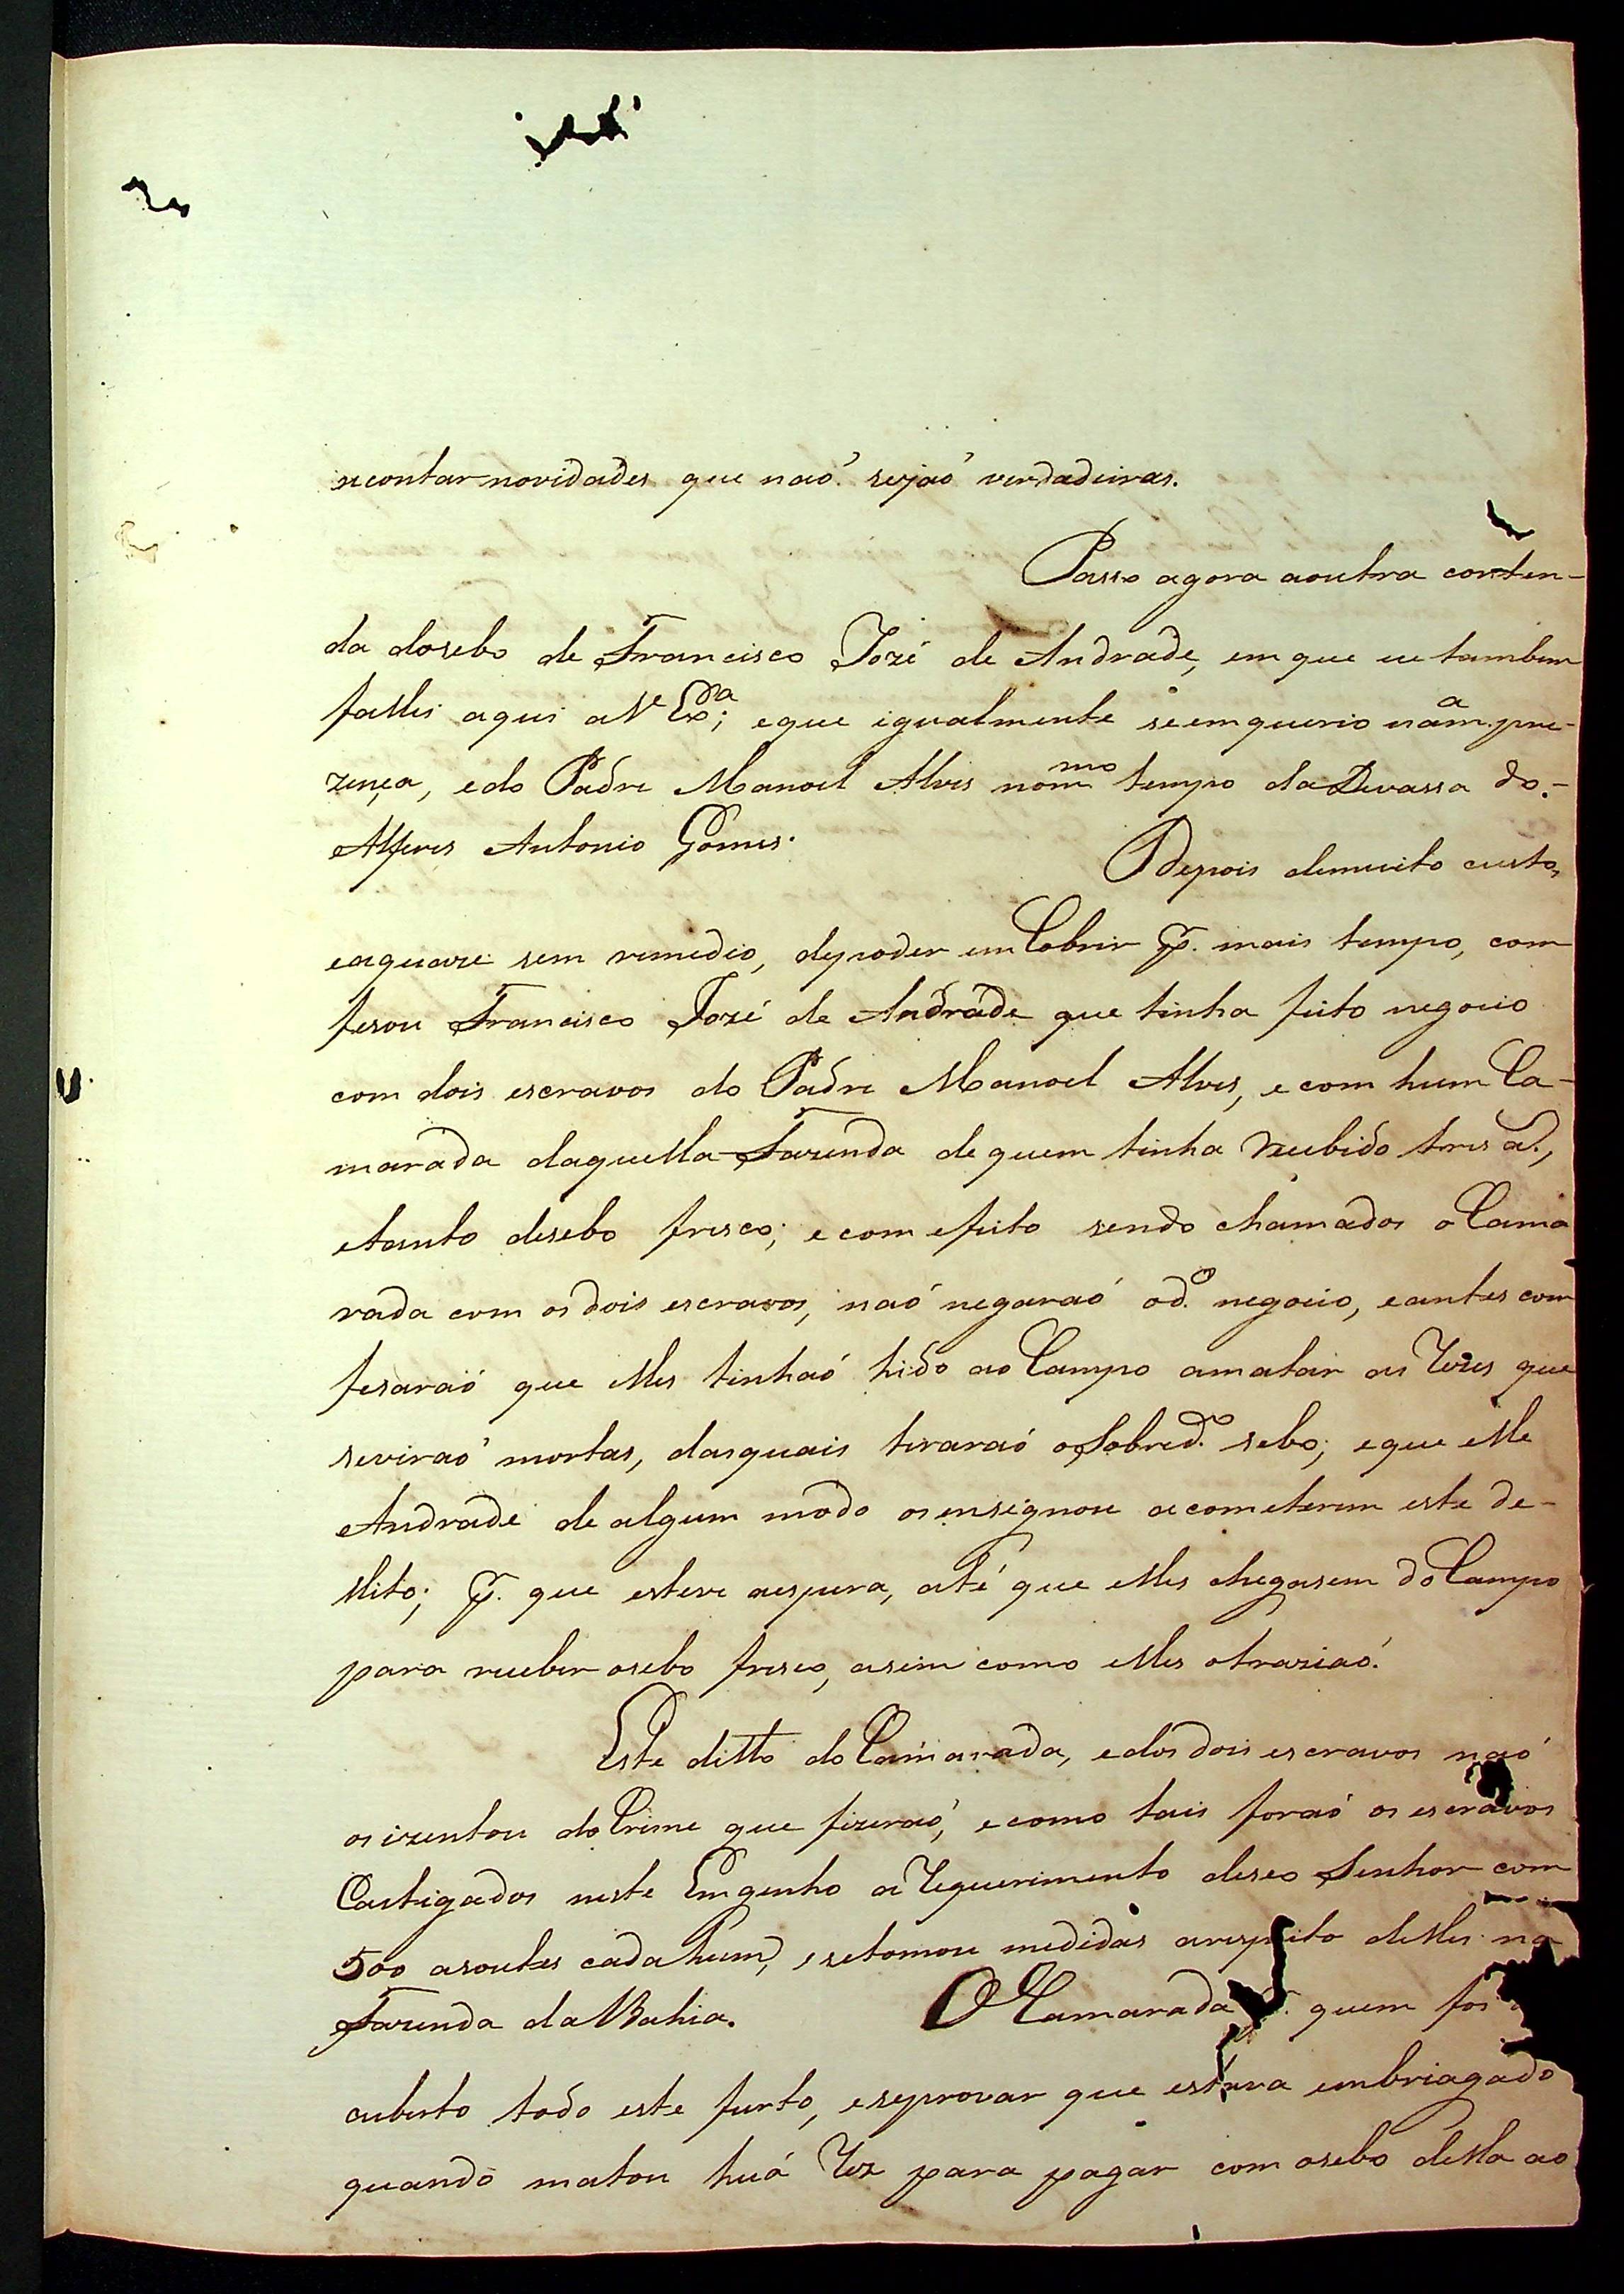 acontar novidades que naõ sejaõ verdadeiras.
Passo agora aoutra conten-
da dosebo de Francisco Jozé de Andrade, em que eu tambem
fallei aqui aVᵉ Exᵃ; eque igualmente seemquerio nam.ᵃ pre-
zença, edo Padre Manoel Alves nomᵐᵒ tempo daDevassa do.-
Alferes Antonio Gomes.
Depois demuito custo,
eaquaze sem remedio, depoder emCobrir p. mais tempo, com
fesou Francisco Jozé de Andrade que tinha feito negocio
com dois escravos do Padre Manoel Alves, ecom hum Ca-
marada daquella Fazenda dequem tinha Recebido tres a.,
etanto desebo fresco; ecom efeito sendo chamados oCama
rada com os dois escravos, naõ negaraõ od.º negocio, eantes com
fesaraõ que elles tinhaõ hido aoCampo amatar as Rezes que
seviraõ mortas, dasquais tiraraõ oSobred.º sebo; eque elle
Andrade de algum modo osensignou acometerem este de-
llito; p. que esteve aespera, até que elles chegasem doCampo
para receber osebo fresco, asim como elles otraziaõ.
Este ditto doCamarada, edos dois escravos naõ
osizentou doCrime que fizeraõ, ecomo tais foraõ os escravos
Castigados neste Emgenho aRequerimento deseo Senhor com
500 asoutes cada hum, esetomou medidas arespeito delles na
Fazenda daBahia.
OCamarada quem foi
cuberto todo este furto, eseprovar que estava embriagado
quando matou huã Rez para pagar com osebo della ao